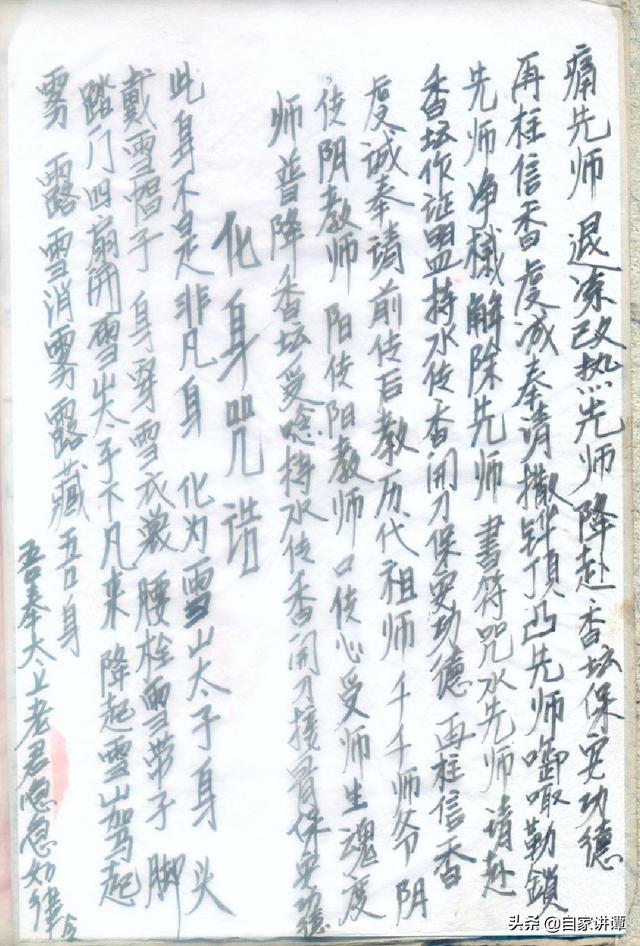 痛先师 退凉改热先师降赴香坛保安功德
再柱信香虔诚奉请撒铧顶凸先师啣嗽勒鎖
先师净械解除先师 書符咒水先师请赴
香坛作证盟持水传香闭刀保安功德 再柱信香
虔诚奉请前传后教历代祖师千千师爷阴
传阴教师 阳传阳教师口传心受师生魂度
师普降香坛受唸持水传香闭刀接骨保安功德
化身咒诰
此身不是非凡身 化为雪山太子身 头
戴雪帽子 身穿雪衣裳 腰栓雪带子 脚
踏门四扇開雪山太子不凡来 降起雪山驾起
雾 露雪消雾露藏吾身
吾奉太上老君急急如律令
头条 @自家讲谭